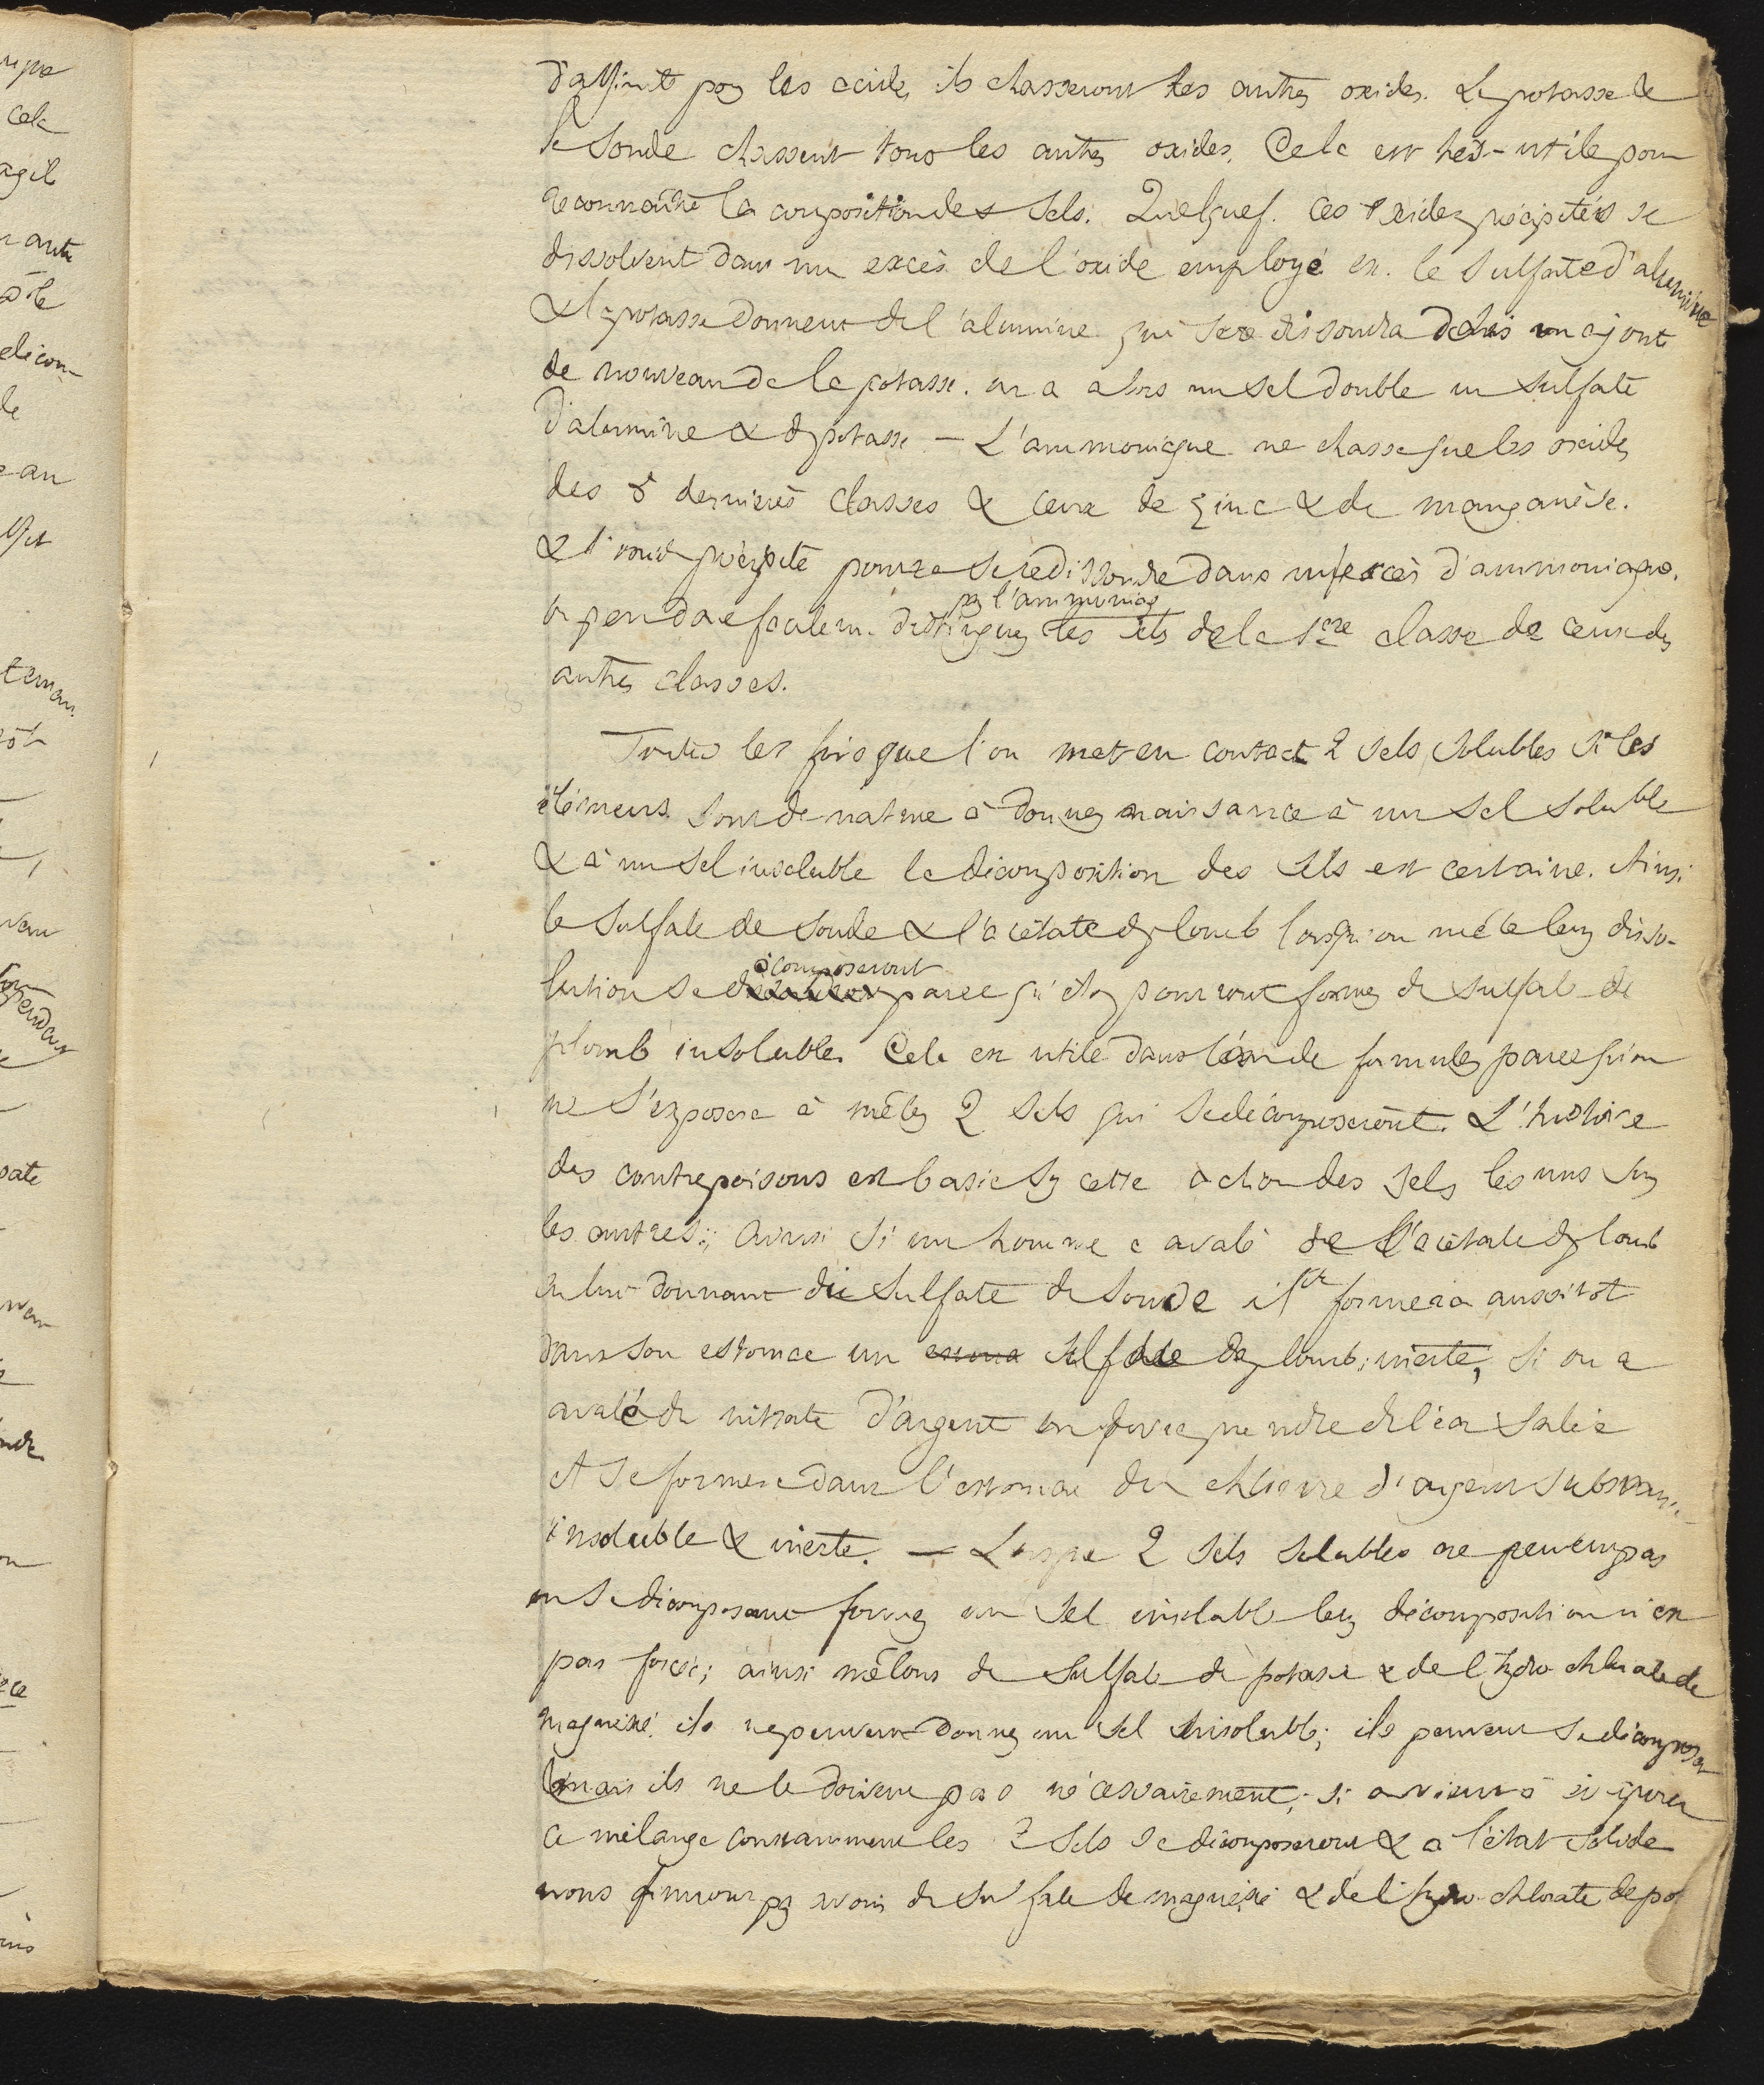 d'affinité pr les acides ils chasseront les autres oxides. La potasse &
la soude chassent tous les autres oxides. Cela est très-utile pour
reconnaître la composition des sels. Quelquef. ces oxides précipités se
dissolvent dans un excès de l'oxide employé ex. le sulfate d'alumine
& la potasse donnent de l'alumine qui se redissoudra dès qu'on ajoute
de nouveau de la potasse. on a alors un sel double un sulfate
d'alumine & de potasse — L'ammoniaque ne chasse que les oxides
des dernières classes & ceux de zinc & de manganèse.
& l'oxide précipité pourra se redissoudre dans un excès d'ammoniaque.
on peut donc facilem. distinguer par l'ammoniaq. les sels de la 1ere classe de ceux des
autres classes.
Toutes les fois que l'on met en contact 2 sels solubles si les
élémens sont de nature à donner naissance à un sel soluble
& à un sel insoluble la décomposition des sels est certaine. Ainsi
le sulfate de soude & l'acétate de plomb lorsqu'on mêle leur disso-
lution se décomposeront parce qu'ils pourront former du sulfate de
plomb insoluble. Cela est utile dans l'art de formuler parce qu'on
ne s'exposera à mêler 2 sels qui se décomposeront. L'histoire
des contrepoisons est basée sur cette action des sels les uns sur
les autres; ainsi si un homme a avalé de l'acétate de plomb
en lui donnant du sulfate de soude il se formera aussitot
dans son estomac un sulfate de plomb inerte, si on a
avalé du nitrate d'argent on fera prendre de l'eau salée
et se formera dans l'estomac du chlorure d'argent substance
insoluble & inerte. — Lorsque 2 sels solubles ne peuvent pas
en se décomposant former un sel insoluble leur décomposition n'est
pas forcée; ainsi mêlons du sulfate de potasse & de l'hydro chlorate de
magnésie ils ne peuvent donner un sel insoluble; ils peuvent se décomposer
mais ils ne le doivent pas nécessairement; si on vient à évaporer
ce mélange constamment les 2 sels se décomposeront & à l'état solide
nous finirons pr avoir du sulfate de magnésie & de l'hydro-chlorate de pot